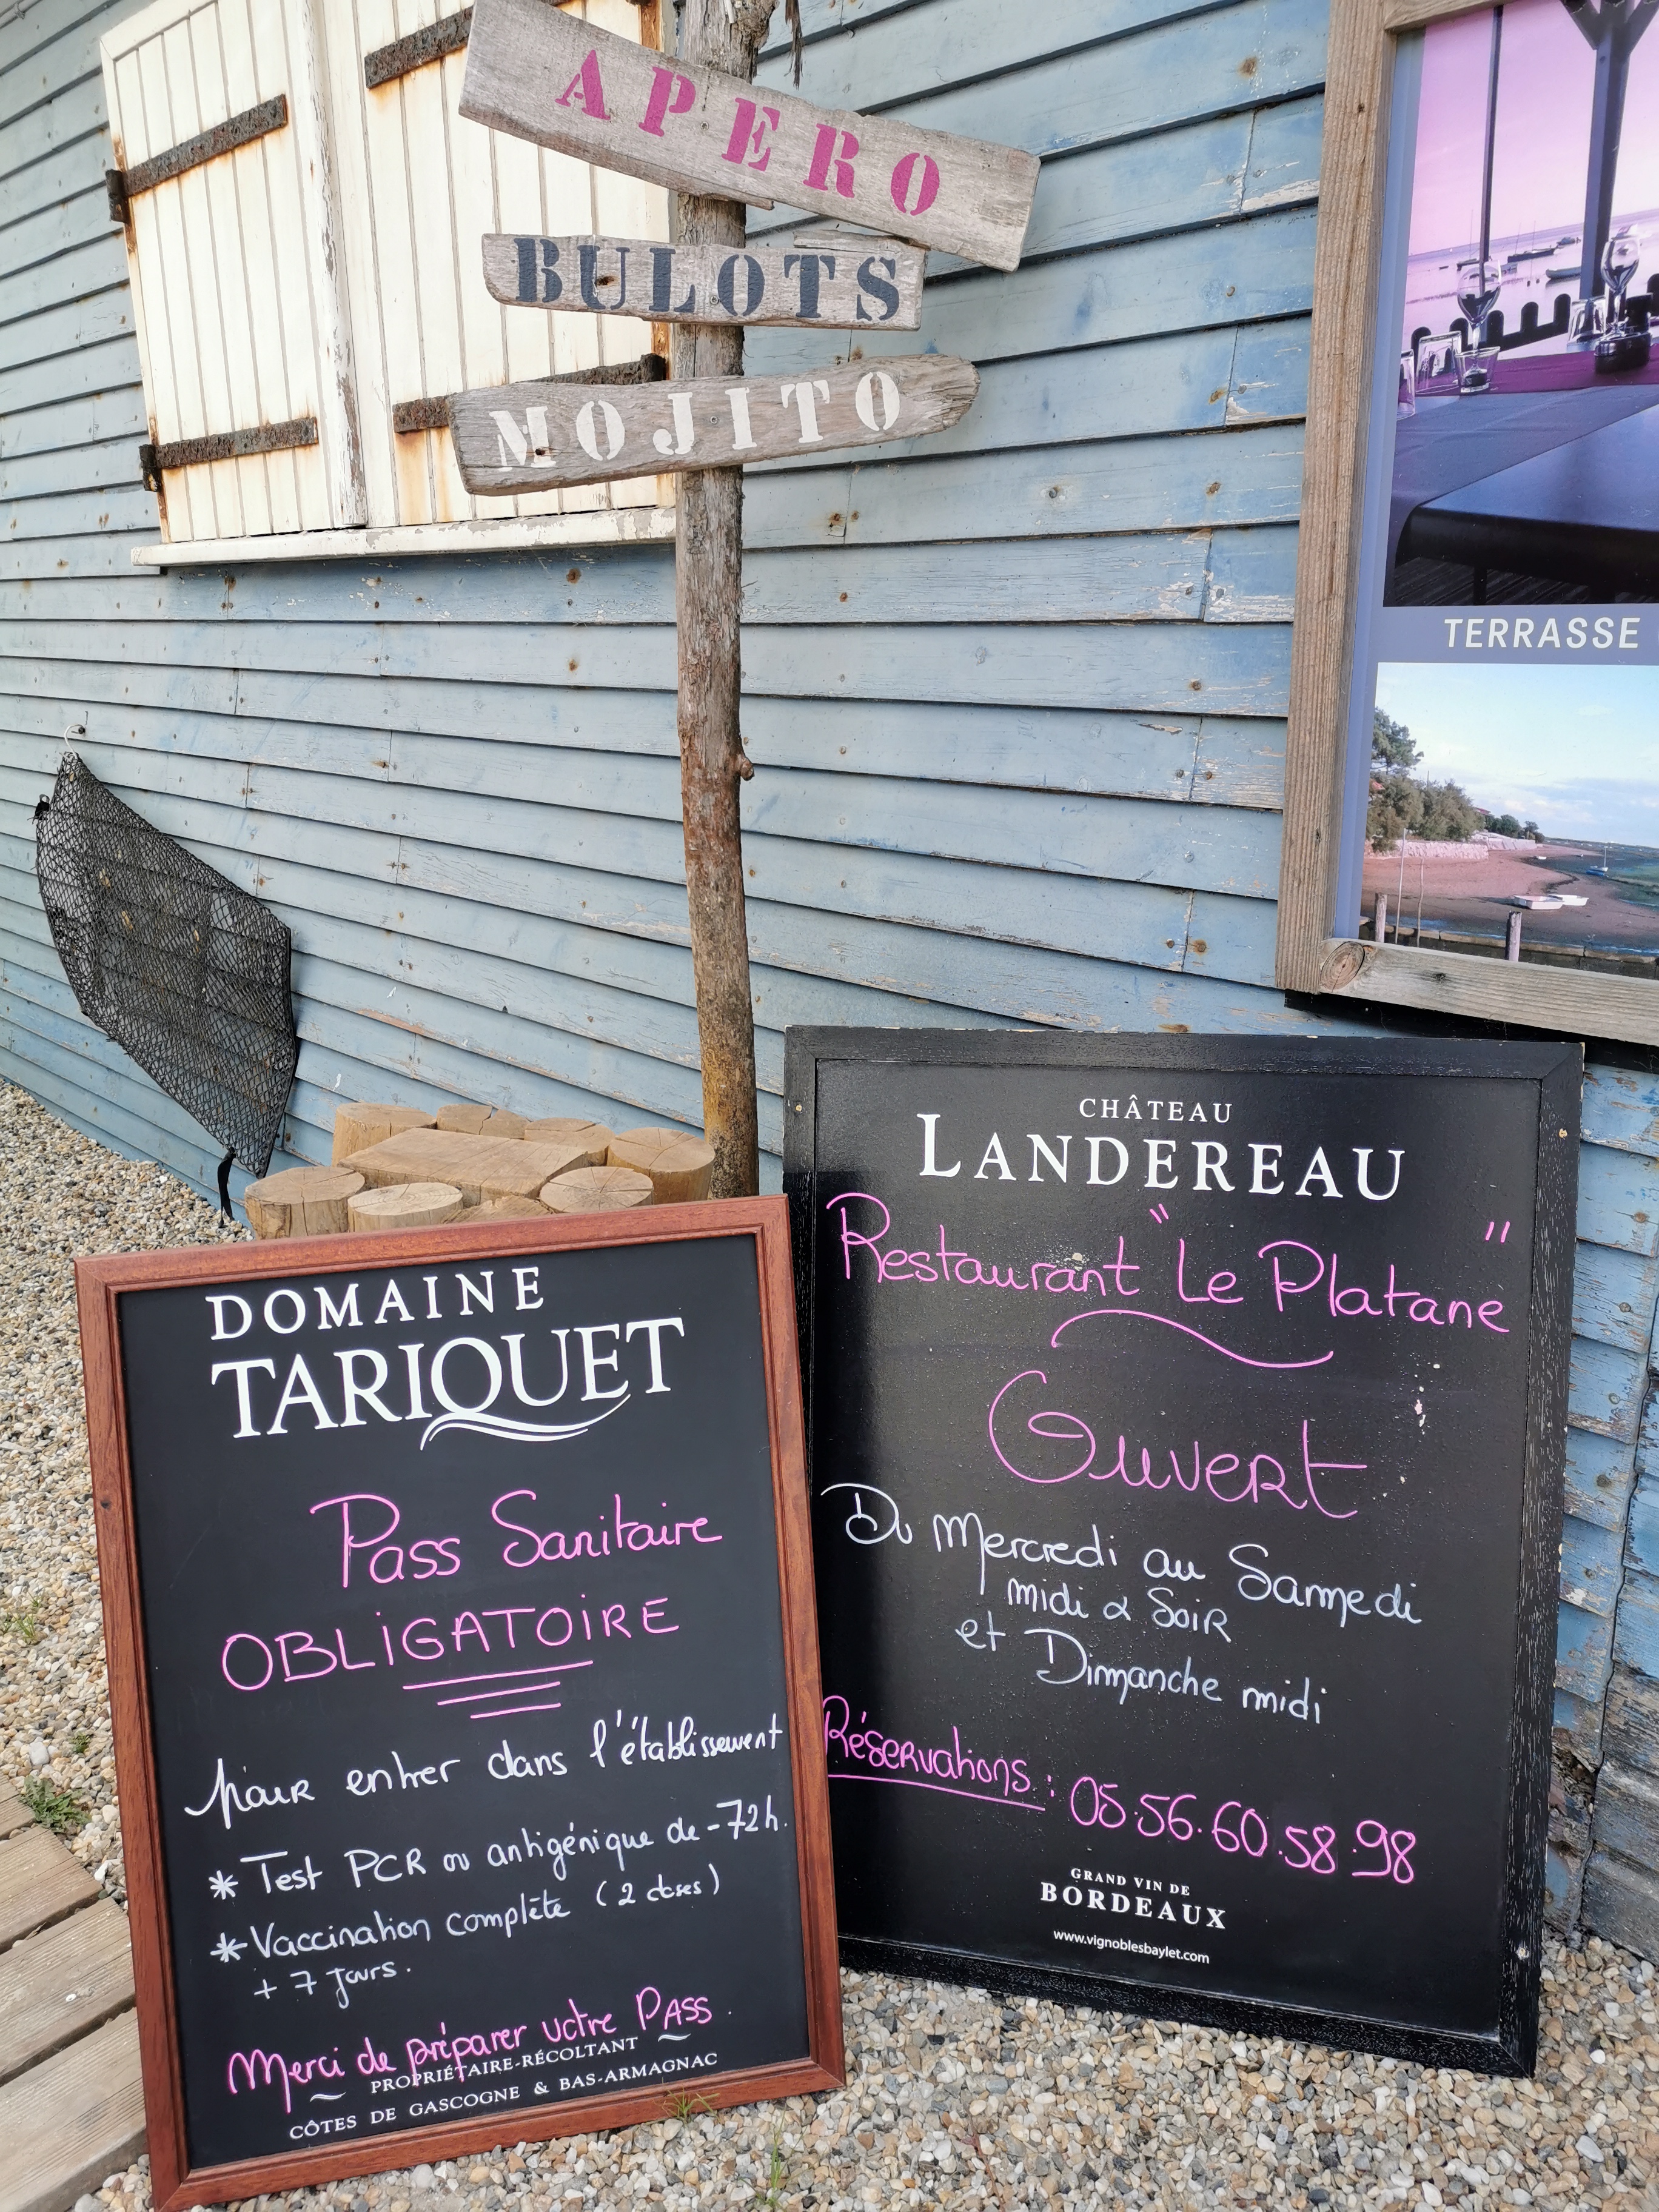 APERO
BULOTS
MOJITO
TERRASSE
CHÂTEAU
LANDEREAU
Restaurant "Le Platane"
Ouvert
Du Mercredi au Samedi
midi & Soir
et Dimanche midi
Réservations : 05.56.60.58.98
GRAND VIN DE
BORDEAUX
www.vignoblesbaylet.com
DOMAINE
TARIQUET
Pass Sanitaire
OBLIGATOIRE
pour entrer dans l'établissement
* Test PCR ou antigénique de -72h.
* Vaccination complète (2 doses)
+ 7 jours.
Merci de préparer votre PASS.
PROPRIÉTAIRE-RÉCOLTANT
CÔTES DE GASCOGNE & BAS-ARMAGNAC